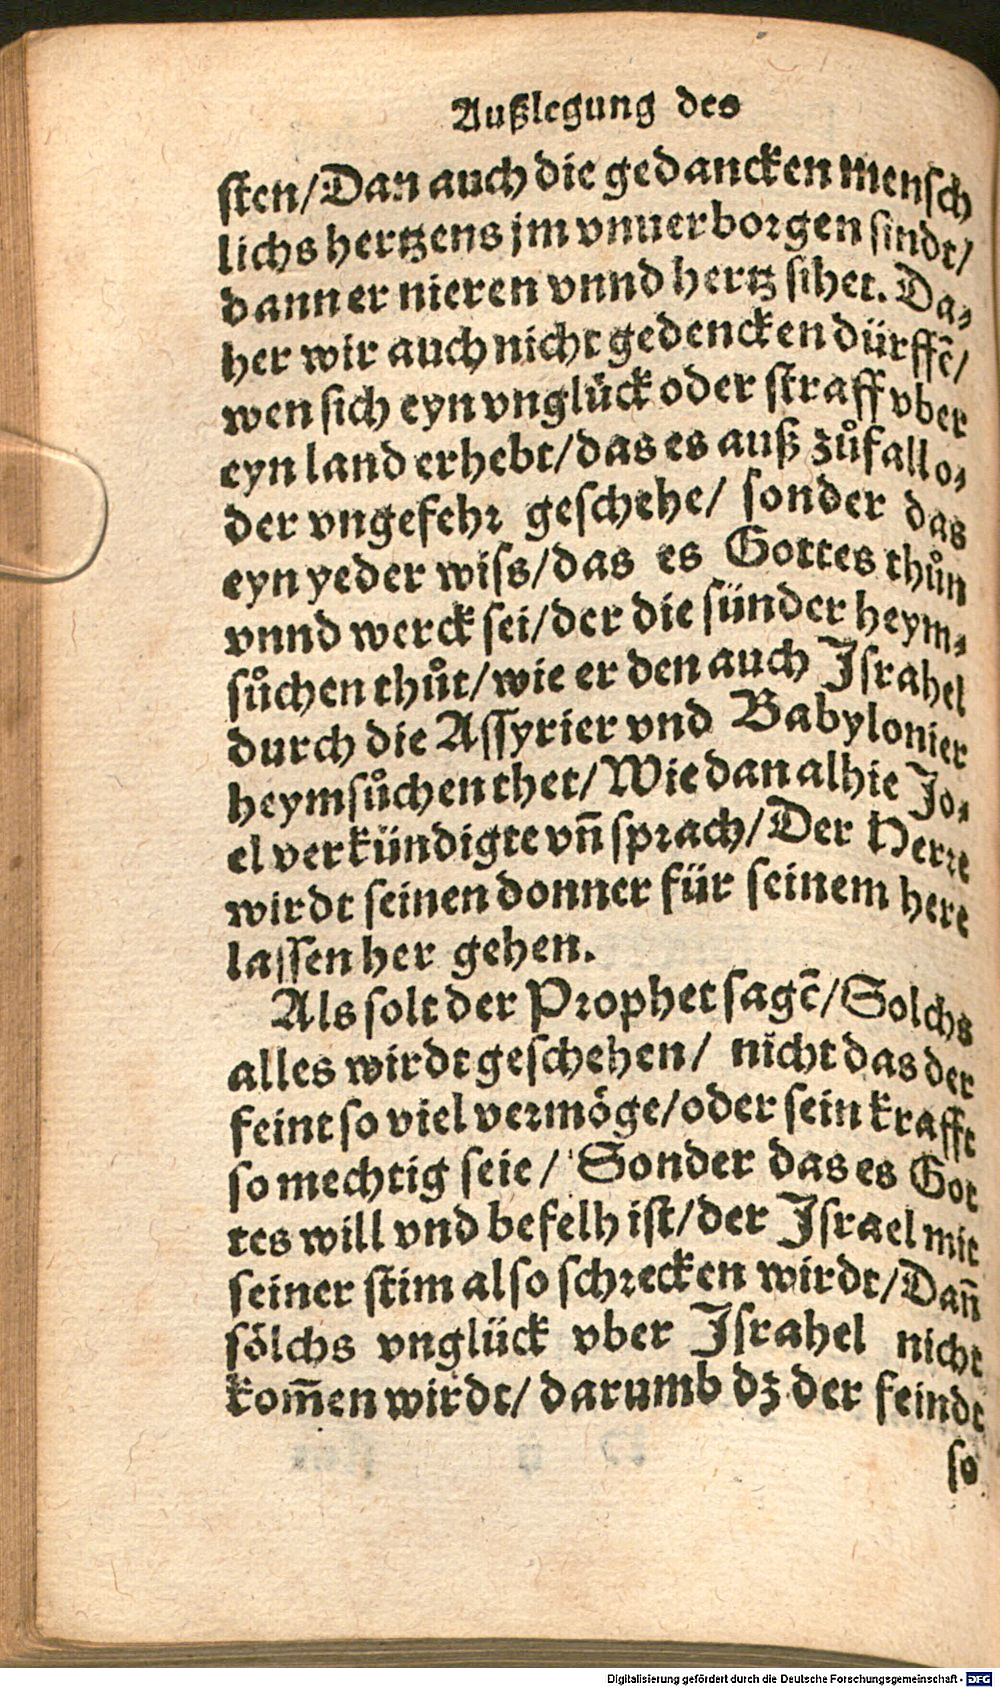 Außlegung des
sten/Dan auch die gedancken mensch
lichs hertzens jm vnuerborgen sindt/
dann er nieren vnnd hertz sihet. Da⸗
her wir auch nicht gedencken dürffē/
wen sich eyn vnglück oder straff vber
eyn land erhebt/das es auß zůfall o⸗
der vngefehr geschehe/ sonder das
eyn yeder wiss/das es Gottes thůn
vnnd werck sei/der die sünder heym⸗
sůchen thůt/wie er den auch Israhel
durch die Assyrier vnd Babylonier
heymsůchen thet/Wie dan alhie Jo⸗
el verkündigte vñ sprach/Der Herre
wirdt seinen donner für seinem here
lassen her gehen.
Als solt der Prophet sagē/Solchs
alles wirdt geschehen/ nicht das der
feint so viel vermöge/oder sein krafft
so mechtig seie/ Sonder das es Got
tes will vnd befelh ist/der Israel mit
seiner stim also schrecken wirdt/Dañ
sölchs vnglück vber Israhel nicht
kom̄en wirdt/ darumb dz der feindt
so
Digitalisierung gefördert durch die Deutsche Forschungsgemeinschaft - DFG